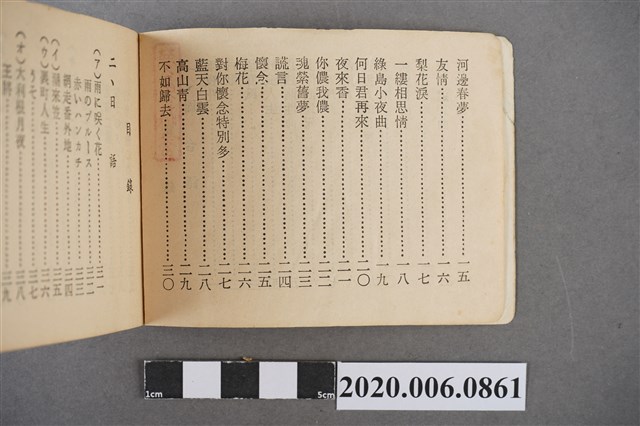 河邊春夢……一五
友情……一六
梨花淚……一七
一縷相思情……一八
綠島小夜曲……一九
何日君再來……二〇
夜來香……二一
你儂我儂……二二
魂縈舊夢……二三
謊言……二四
懷念……二五
梅花……二六
對你懷念特別多……二七
藍天白雲……二八
高山青……二九
不如歸去……三〇
目錄
二、日語
(ア)雨に咲く花……三一
雨のブルース……三二
赤いハンカチ……三三
網走番外地……三四
(ウ)裏町人生……三六
うそ……三七
(オ)大利根月夜……三八
王將……三九
1cm
5cm
2020.006.0861